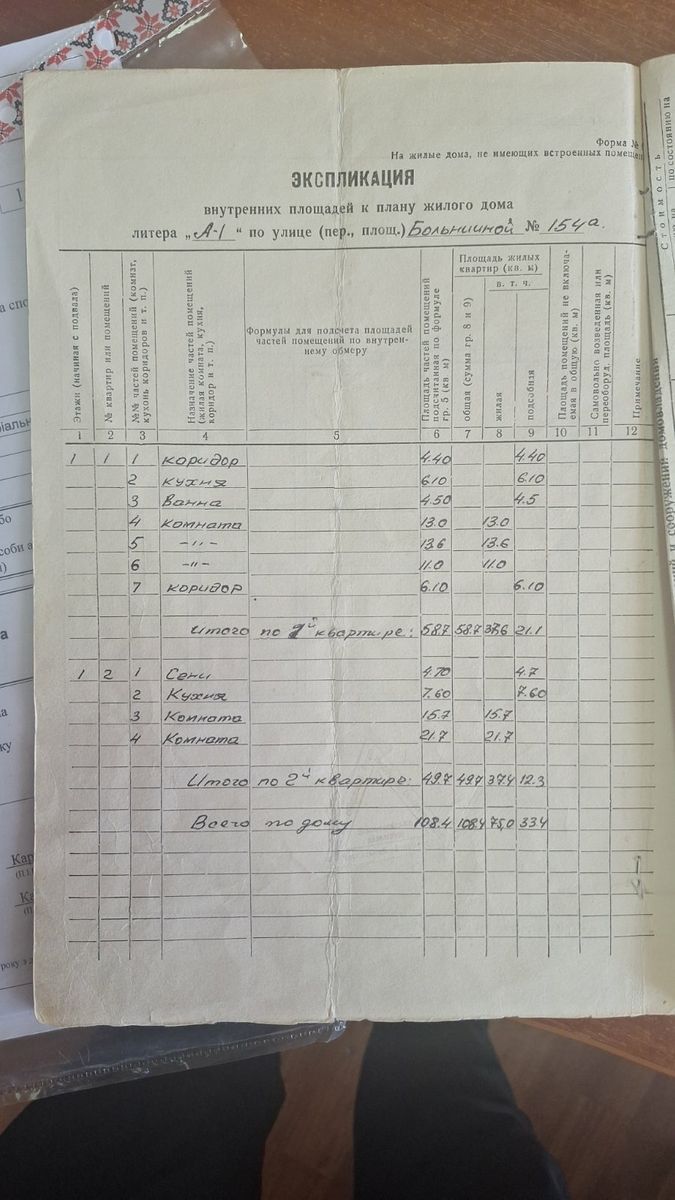 Форма №
На жилые дома, не имеющих встроенных помещен
ЭКСПЛИКАЦИЯ
внутренних площадей к плану жилого дома
литера „А-1“ по улице (пер., площ.) Больничной № 154а.
Этажи (начиная с подвала)
№ квартир или помещений
№№ частей помещений (комнат, кухонь коридоров и т. п.)
Назначение частей помещений (жилая комната, кухня, коридор и т. п.)
Формулы для подсчета площадей частей помещений по внутреннему обмеру
Площадь частей помещений подсчитанная по формуле гр. 5 (кв м)
Площадь жилых квартир (кв. м)
общая (сумма гр. 8 и 9)
в. т. ч.
жилая
подсобная
Площадь помещений не включаемая в общую (кв. м)
Самовольно возведенная или переоборуд. площадь (кв. м)
Примечание
1 2 3 4 5 6 7 8 9 10 11 12
1 1 1 коридор 4.40 4.40
2 кухня 6.10 6.10
3 Ванна 4.50 4.5
4 Комната 13.0 13.0
5 -„- 13.6 13.6
6 -„- 11.0 11.0
7 коридор 6.10 6.10
Итого по 1й квартире: 58.7 58.7 37.6 21.1
1 2 1 Сени 4.70 4.7
2 Кухня 7.60 7.60
3 Комната 15.7 15.7
4 Комната 21.7 21.7
Итого по 2й квартире: 49.7 49.7 37.4 12.3
Всего по дому 108.4 108.4 75,0 33.4
Стоимость
по состоянию на
и сооружений домовладения